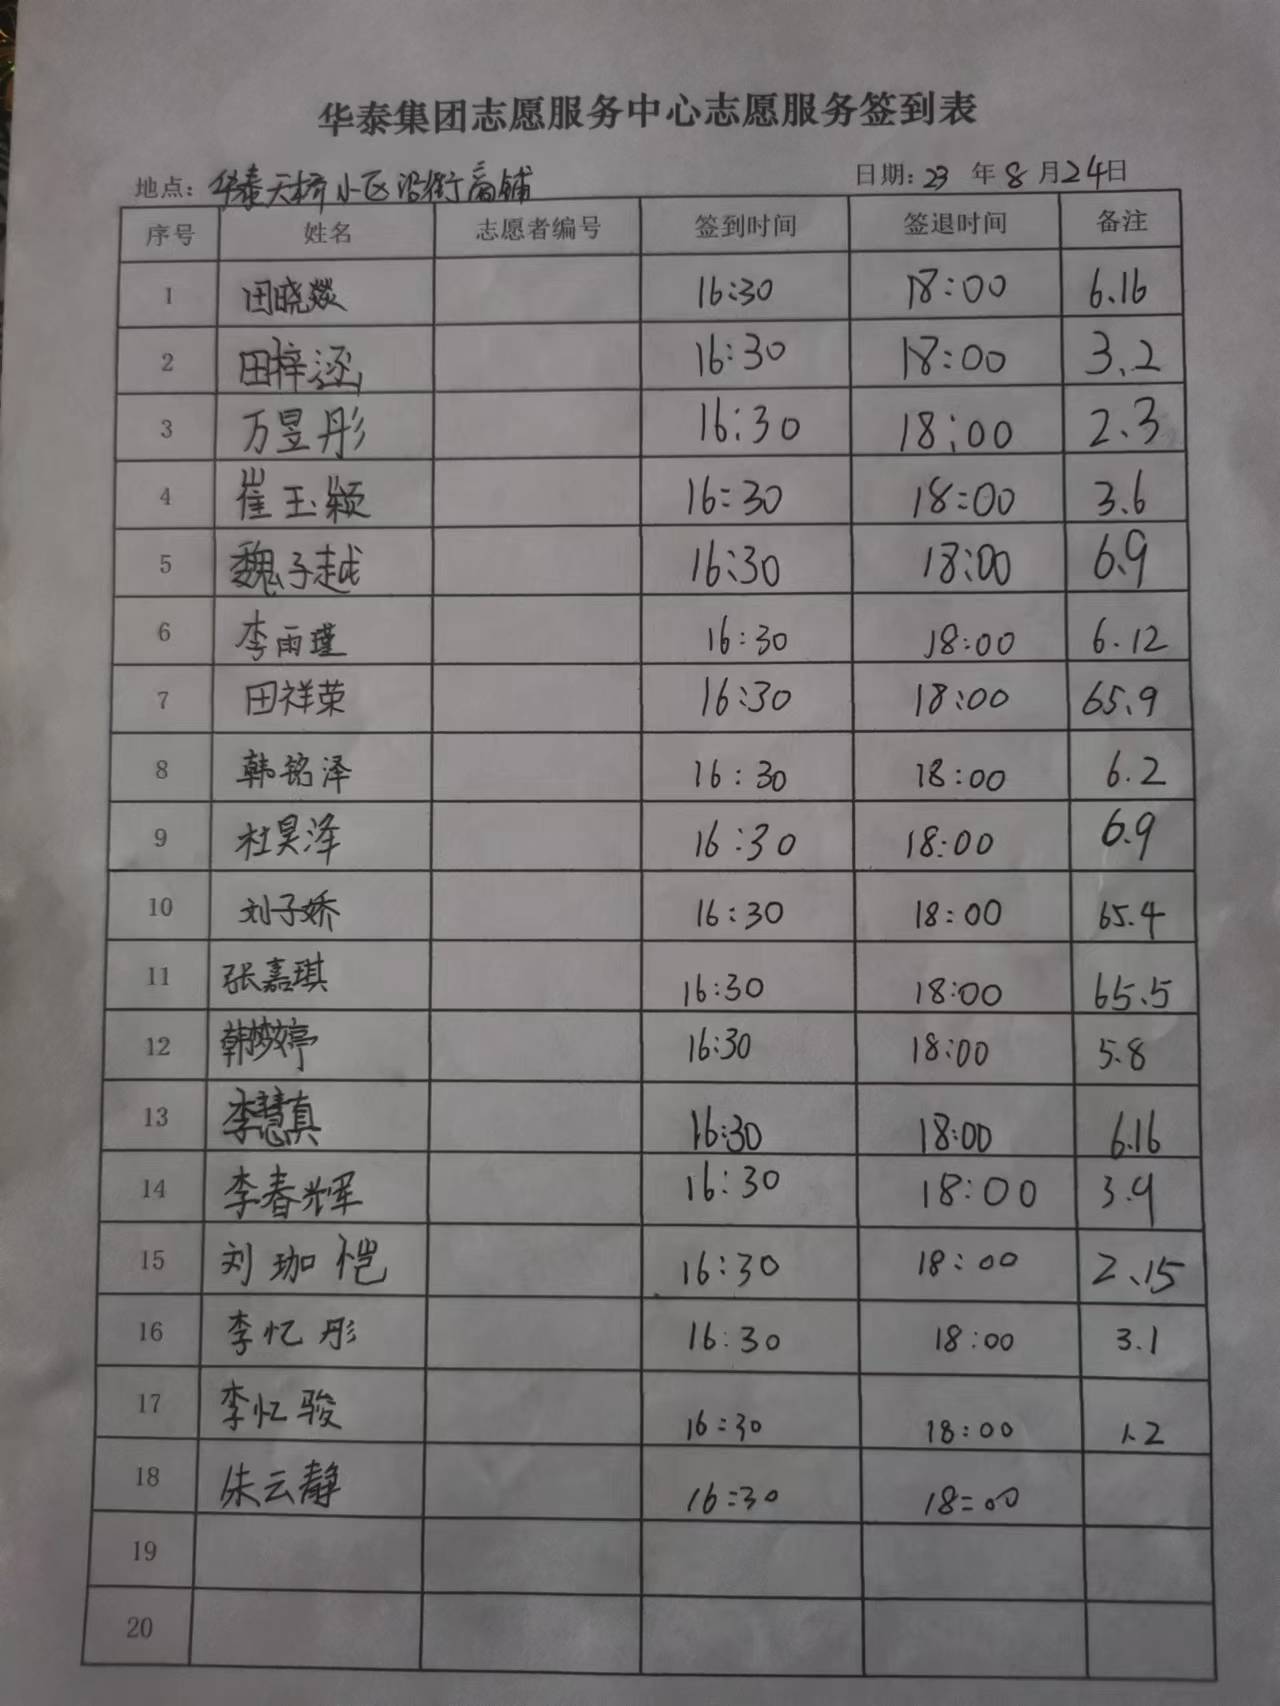 华泰集团志愿服务中心志愿服务签到表
地点：华泰天桥小区沿街商铺 日期：23 年 8 月 24 日
序号 姓名 志愿者编号 签到时间 签退时间 备注
1 田晓燚 16:30 18:00 6.16
2 田梓逐 16:30 18:00 3.2
3 万昱彤 16:30 18:00 2.3
4 崔玉颖 16:30 18:00 3.6
5 魏子越 16:30 18:00 6.9
6 李雨瑾 16:30 18:00 6.12
7 田祥荣 16:30 18:00 65.9
8 韩铭泽 16:30 18:00 6.2
9 杜昊泽 16:30 18:00 6.9
10 刘子娇 16:30 18:00 65.4
11 张嘉琪 16:30 18:00 65.5
12 韩梦婷 16:30 18:00 5.8
13 李慧真 16:30 18:00 6.16
14 李春辉 16:30 18:00 3.9
15 刘珈恺 16:30 18:00 2.15
16 李忆彤 16:30 18:00 3.1
17 李忆骏 16:30 18:00 1.2
18 朱云静 16:30 18:00
19
20